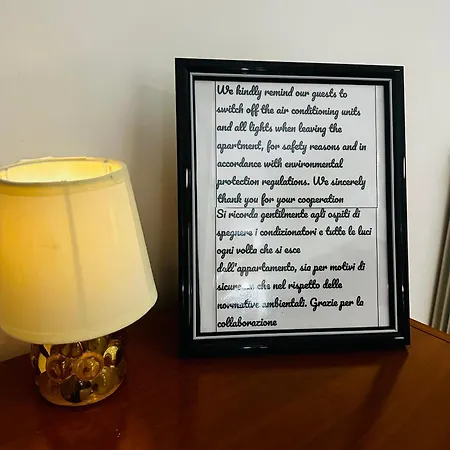 We kindly remind our guests to
switch off the air conditioning units
and all lights when leaving the
apartment, for safety reasons and in
accordance with environmental
protection regulations. We sincerely
thank you for your cooperation
Si ricorda gentilmente agli ospiti di
spegnere i condizionatori e tutte le luci
ogni volta che si esce
dall'appartamento, sia per motivi di
sicurezza che nel rispetto delle
normative ambientali. Grazie per la
collaborazione